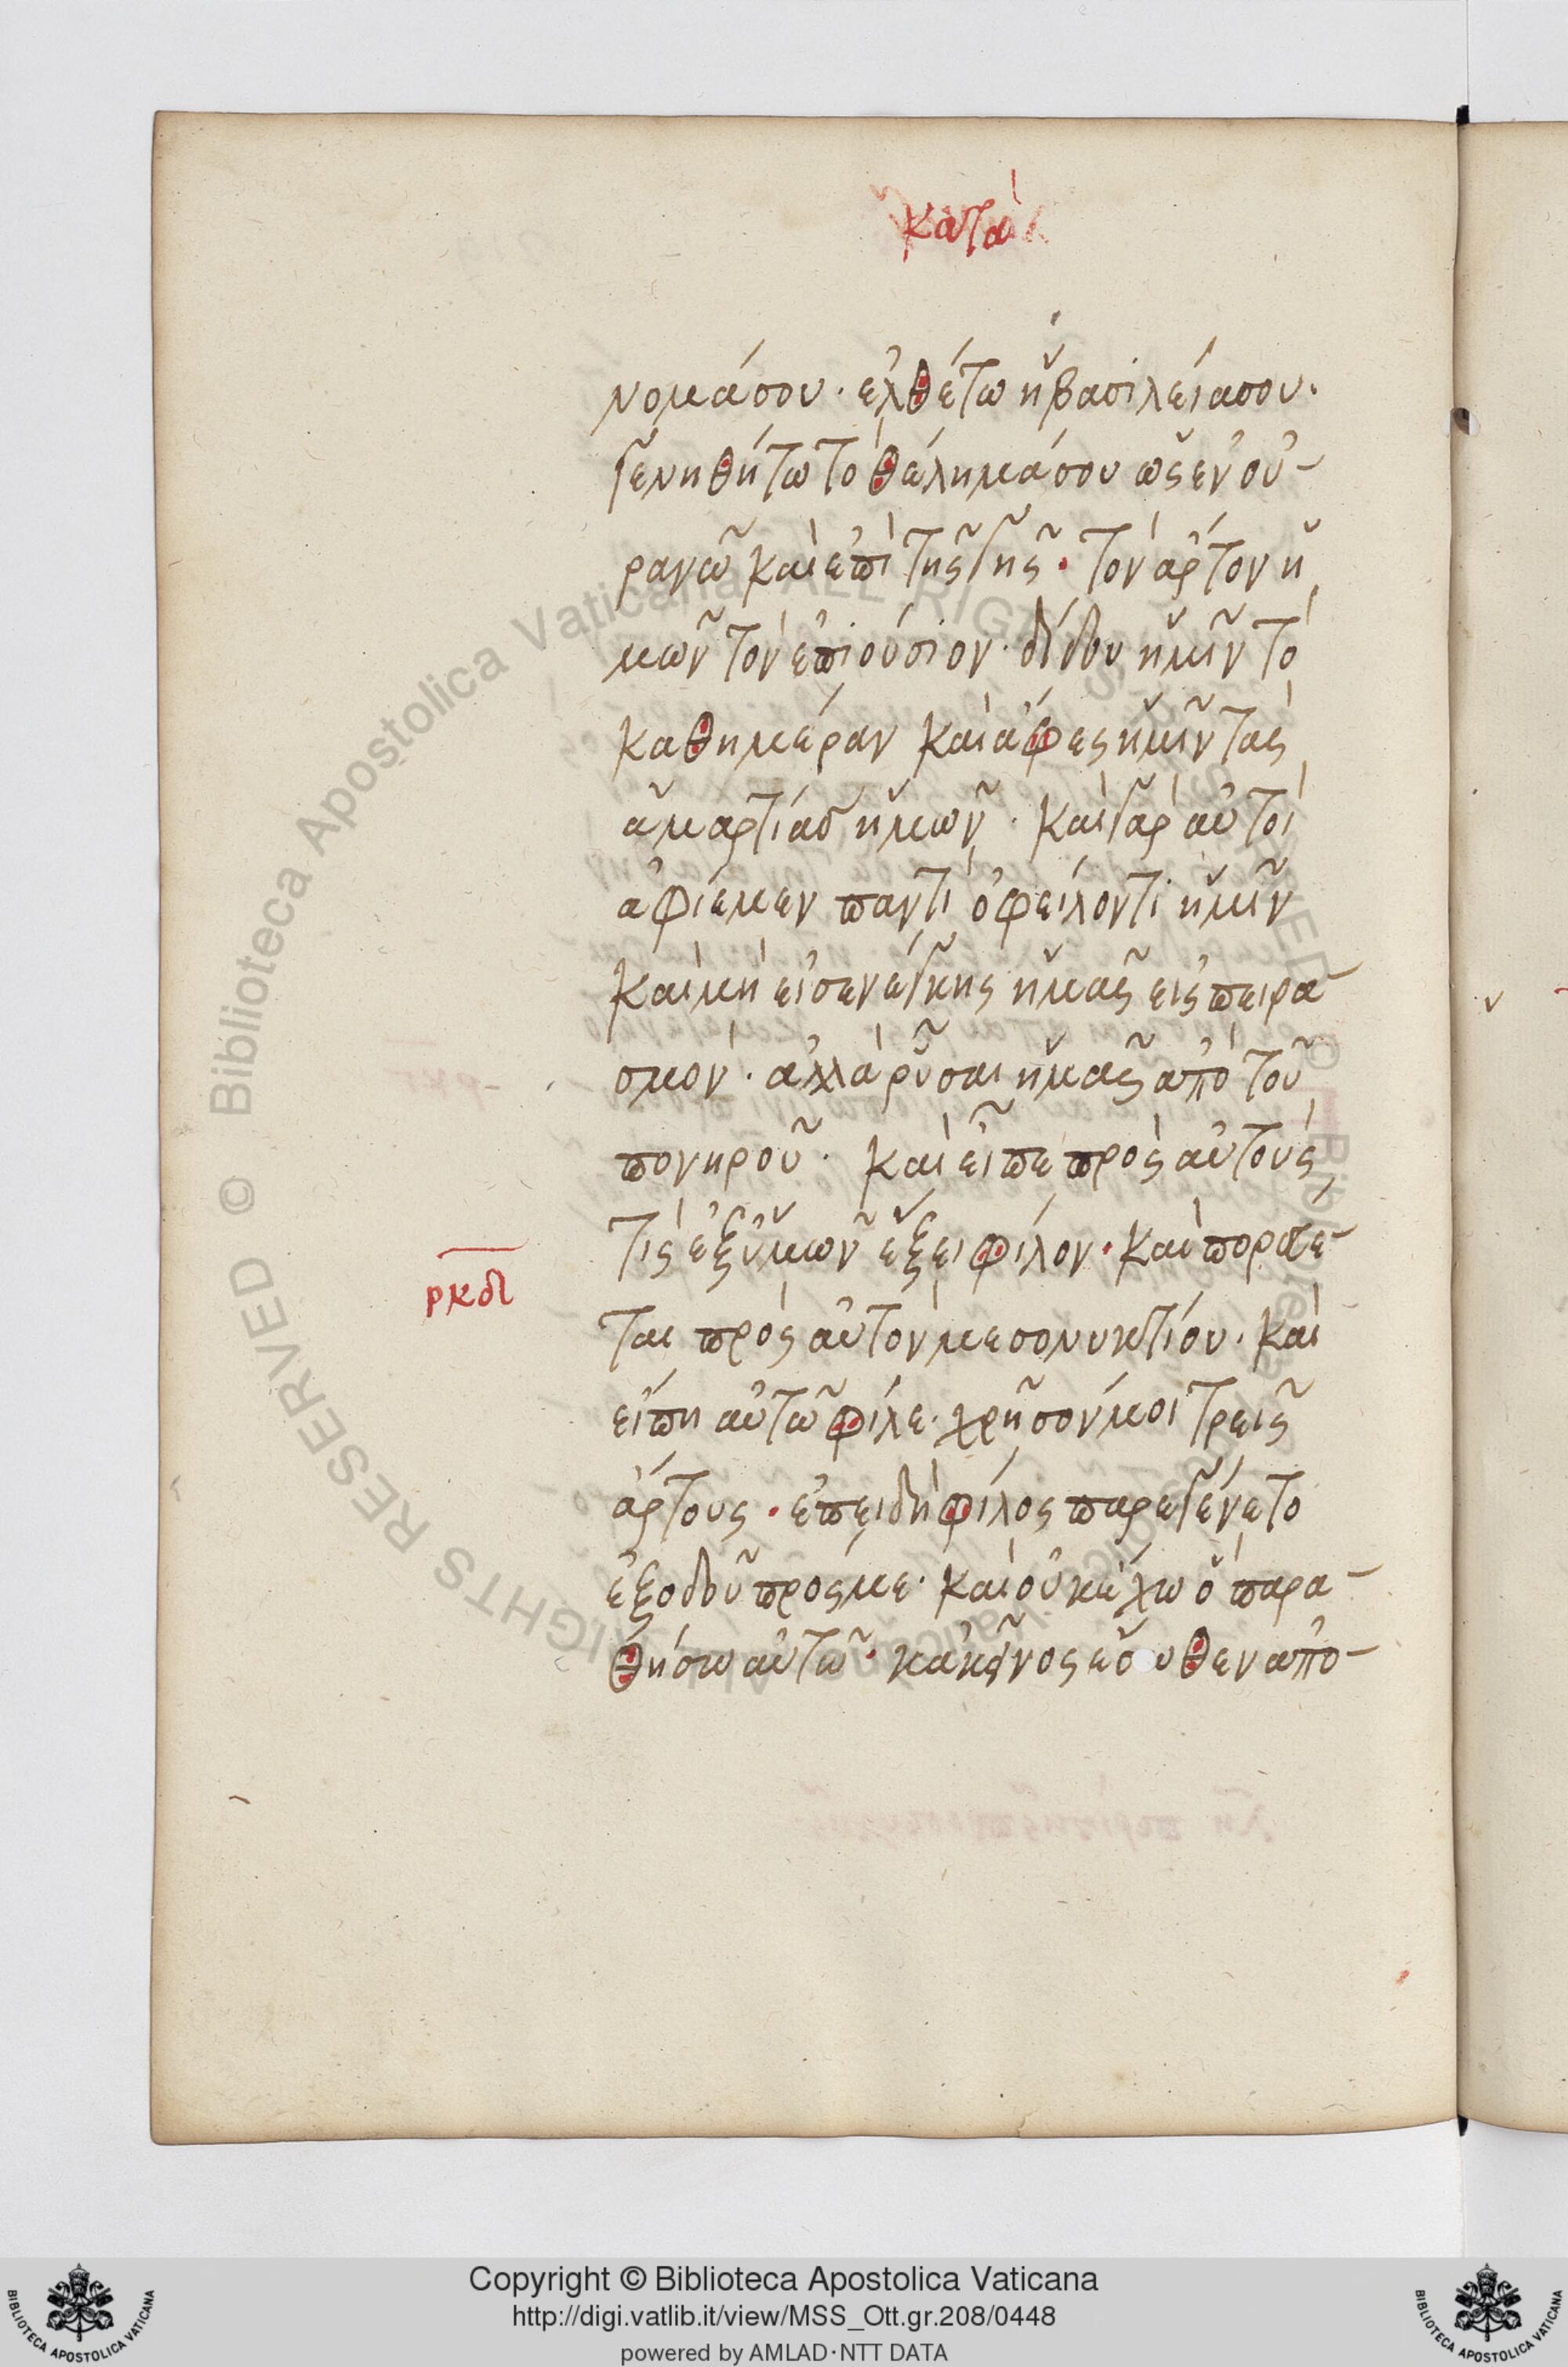 κατὰ
νομάσου· ἐλθέτω ἡβασιλείασου·
γενηθήτω τὸ θέλημάσου ὡς ἐν οὐ-
ρανῶ καὶ ἐπὶ τῆς γῆς· τὸν ἄρτον ἡ
μῶν τὸν ἐπιούσιον· δίδου ἡμῖν τὸ
καθημέραν καὶ ἄφες ἡμῖν τὰς
ἁμαρτίας ἡμῶν· καὶ γὰρ αὐτοὶ
ἀφίεμεν παντὶ ὀφείλοντι ἡμῖν
καὶ μὴ εἰσενέγκης ἡμᾶς εἰς πειρα-
σμόν· ἀλλὰ ῥῦσαι ἡμᾶς ἀπὸ τοῦ
πονηροῦ· καὶ εἶπε πρὸς αὐτούς
τίς ἐξ ὑμῶν ἕξει φίλον· καὶ πορεύσε-
ρκδ
ται πρὸς αὐτὸν μεσονυκτίου· καὶ
εἴπη αὐτῶ φίλε· χρῆσόν μοι τρεῖς
ἄρτους· ἐπειδὴ φίλος παρεγένετο
ἐξοδοῦ πρός με· καὶ οὐκ ἔχω ὃ παρα-
θήσω αὐτῶ· κἀκεῖνος ἔσωθεν ἀπο-
Copyright © Biblioteca Apostolica Vaticana
http://digi.vatlib.it/view/MSS_Ott.gr.208/0448
powered by AMLAD·NTT DATA
BIBLIOTECA APOSTOLICA VATICANA
BIBLIOTECA APOSTOLICA VATICANA